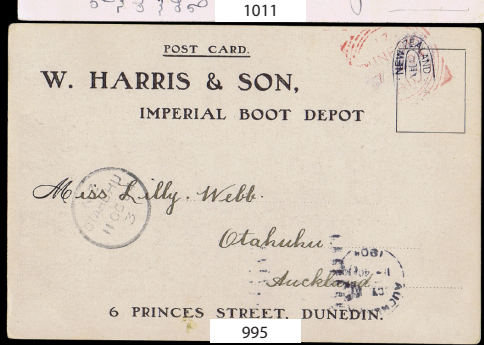 1011
POST CARD.
NEW ZEALAND
W. HARRIS & SON,
IMPERIAL BOOT DEPOT
Miss Lilly. Webb.
OTAHUHU
11 OC
Otahuhu
Auckland.
6 PRINCES STREET, DUNEDIN.
995